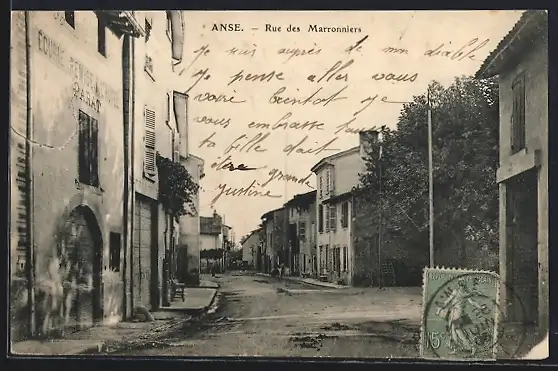 ANSE. - Rue des Marronniers
je suis auprès de mon diable
je pense aller vous
voire bientot je
vous embrasse
ta fille doit
être grande
Justine
ECURIE REMISE
5c